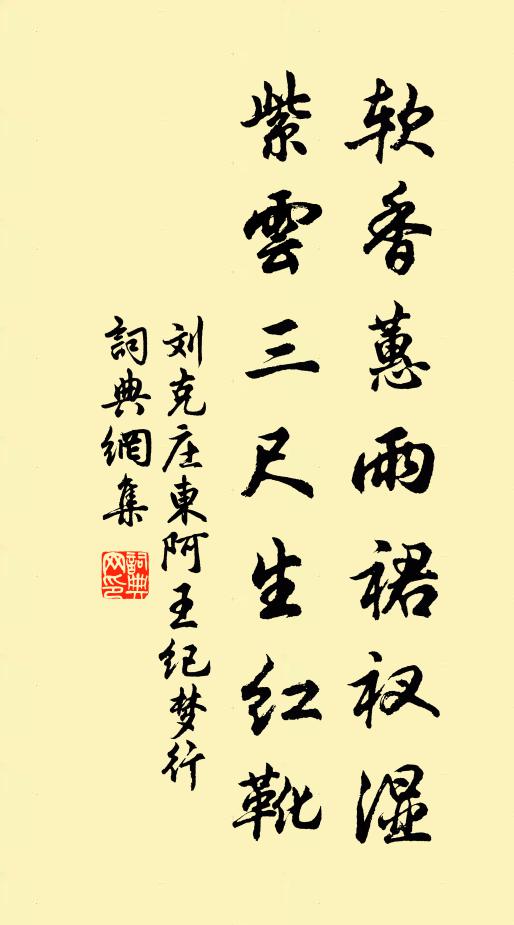 软香蕙雨裙衩湿
紫雲三尺生红靴
刘克庄東阿王纪梦行
詞典網集
詞典网印